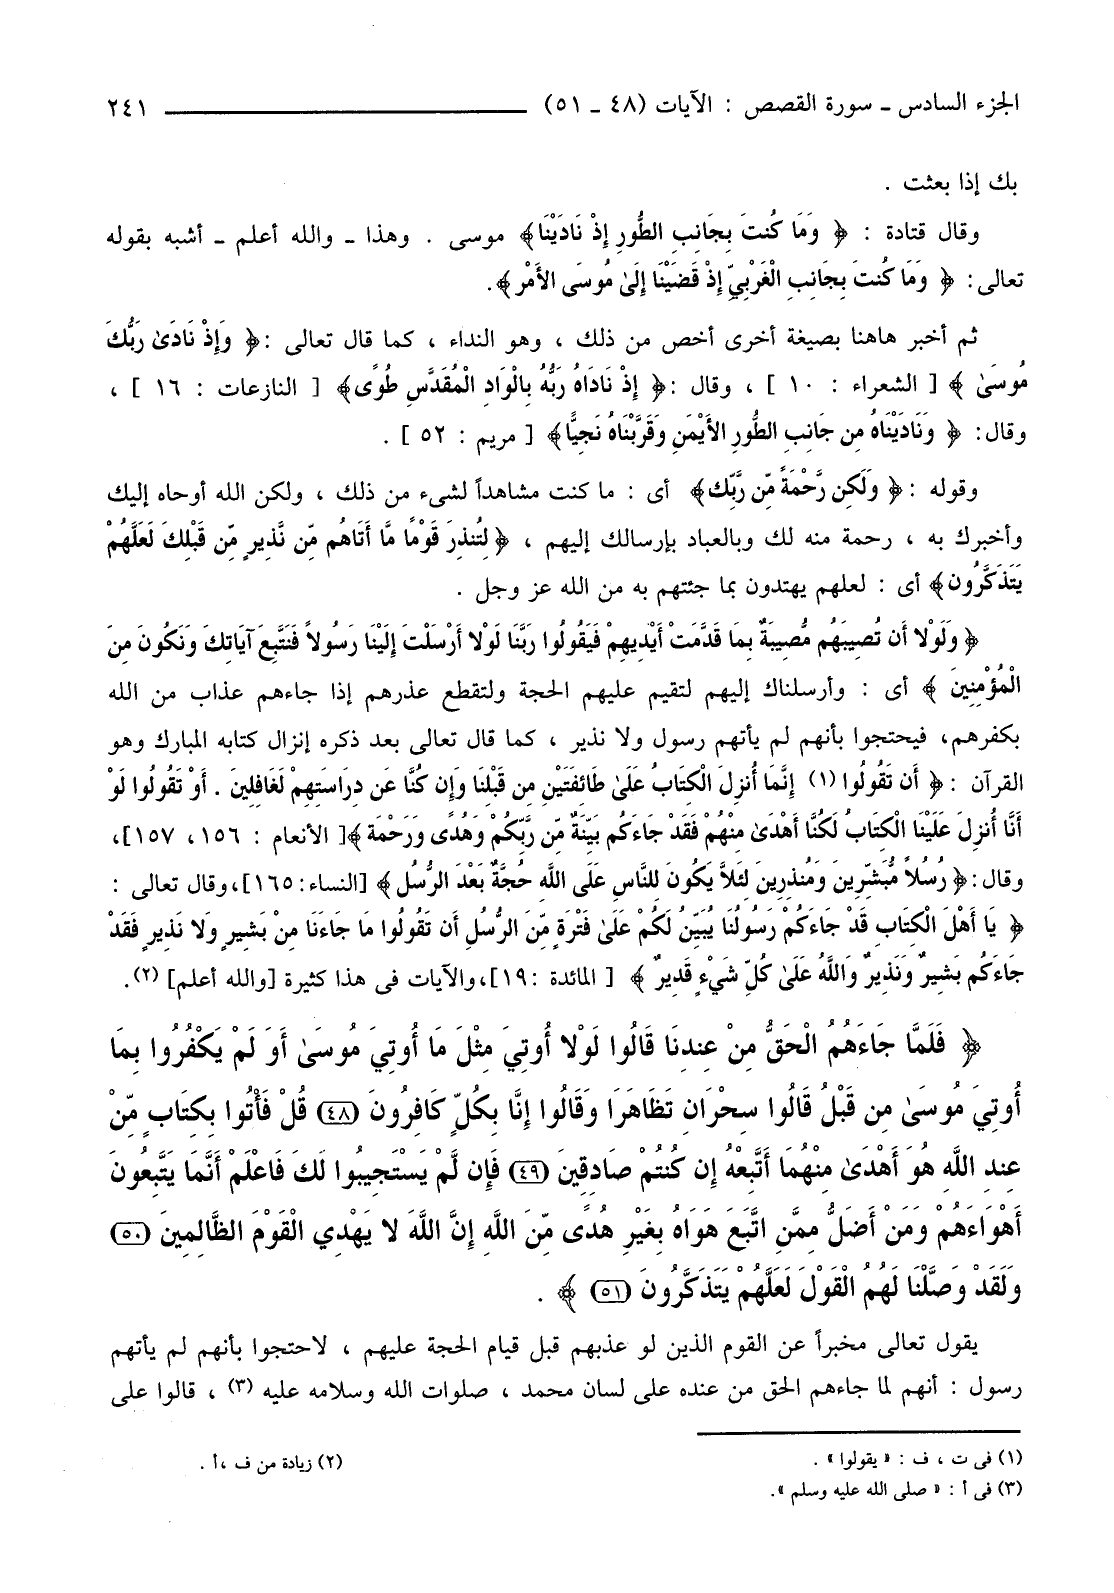 الجزء السادس ـ سورة القصص : الآيات (٤٨ ـ ٥١) ٢٤١
بك إذا بعثت .
وقال قتادة : ﴿ وَمَا كُنتَ بِجَانِبِ الطُّورِ إِذْ نَادَيْنَا﴾ موسى . وهذا ـ والله أعلم ـ أشبه بقوله
تعالى: ﴿ وَمَا كُنتَ بِجَانِبِ الْغَرْبِيِّ إِذْ قَضَيْنَا إِلَىٰ مُوسَى الأَمْر﴾.
ثم أخبر هاهنا بصيغة أخرى أخص من ذلك ، وهو النداء ، كما قال تعالى :﴿ وَإِذْ نَادَىٰ رَبُّكَ
مُوسَىٰ ﴾ [ الشعراء : ١٠ ] ، وقال :﴿ إِذْ نَادَاهُ رَبُّهُ بِالْوَادِ الْمُقَدَّسِ طُوًى﴾ [ النازعات : ١٦ ] ،
وقال: ﴿ وَنَادَيْنَاهُ مِن جَانِبِ الطُّورِ الأَيْمَنِ وَقَرَّبْنَاهُ نَجِيًّا﴾ [ مريم : ٥٢ ] .
وقوله :﴿ وَلَكِن رَّحْمَةً مِّن رَّبِّك﴾ أى : ما كنت مشاهداً لشىء من ذلك ، ولكن الله أوحاه إليك
وأخبرك به ، رحمة منه لك وبالعباد بإرسالك إليهم ، ﴿ لِتُنذِرَ قَوْمًا مَّا أَتَاهُم مِّن نَّذِيرٍ مِّن قَبْلِكَ لَعَلَّهُمْ
يَتَذَكَّرُون﴾ أى : لعلهم يهتدون بما جئتهم به من الله عز وجل .
﴿ وَلَوْلا أَن تُصِيبَهُم مُّصِيبَةٌ بِمَا قَدَّمَتْ أَيْدِيهِمْ فَيَقُولُوا رَبَّنَا لَوْلا أَرْسَلْتَ إِلَيْنَا رَسُولاً فَنَتَّبِعَ آيَاتِكَ وَنَكُونَ مِنَ
الْمُؤْمِنِينَ ﴾ أى : وأرسلناك إليهم لتقيم عليهم الحجة ولتقطع عذرهم إذا جاءهم عذاب من الله
بكفرهم، فيحتجوا بأنهم لم يأتهم رسول ولا نذير ، كما قال تعالى بعد ذكره إنزال كتابه المبارك وهو
القرآن :﴿ أَن تَقُولُوا (١) إِنَّمَا أُنزِلَ الْكِتَابُ عَلَىٰ طَائِفَتَيْنِ مِن قَبْلِنَا وَإِن كُنَّا عَن دِرَاسَتِهِمْ لَغَافِلِينَ . أَوْ تَقُولُوا لَوْ
أَنَّا أُنزِلَ عَلَيْنَا الْكِتَابُ لَكُنَّا أَهْدَىٰ مِنْهُمْ فَقَدْ جَاءَكُم بَيِّنَةٌ مِّن رَّبِّكُمْ وَهُدًى وَرَحْمَة ﴾[ الأنعام : ١٥٦، ١٥٧]،
وقال:﴿ رُسُلاً مُّبَشِّرِينَ وَمُنذِرِينَ لِئَلاَّ يَكُونَ لِلنَّاسِ عَلَى اللَّهِ حُجَّةٌ بَعْدَ الرُّسُل ﴾ [النساء:١٦٥]،وقال تعالى :
﴿ يَا أَهْلَ الْكِتَابِ قَدْ جَاءَكُمْ رَسُولُنَا يُبَيِّنُ لَكُمْ عَلَىٰ فَتْرَةٍ مِّنَ الرُّسُلِ أَن تَقُولُوا مَا جَاءَنَا مِنْ بَشِيرٍ وَلا نَذِيرٍ فَقَدْ
جَاءَكُم بَشِيرٌ وَنَذِيرٌ وَاللَّهُ عَلَىٰ كُلِّ شَيْءٍ قَدِيرٌ ﴾ [ المائدة :١٩]،والآيات فى هذا كثيرة [والله أعلم] (٢).
﴿ فَلَمَّا جَاءَهُمُ الْحَقُّ مِنْ عِندِنَا قَالُوا لَوْلا أُوتِيَ مِثْلَ مَا أُوتِيَ مُوسَىٰ أَوَ لَمْ يَكْفُرُوا بِمَا
أُوتِيَ مُوسَىٰ مِن قَبْلُ قَالُوا سِحْرَانِ تَظَاهَرَا وَقَالُوا إِنَّا بِكُلٍّ كَافِرُونَ (٤٨) قُلْ فَأْتُوا بِكِتَابٍ مِّنْ
عِندِ اللَّهِ هُوَ أَهْدَىٰ مِنْهُمَا أَتَّبِعْهُ إِن كُنتُمْ صَادِقِينَ (٤٩) فَإِن لَّمْ يَسْتَجِيبُوا لَكَ فَاعْلَمْ أَنَّمَا يَتَّبِعُونَ
أَهْوَاءَهُمْ وَمَنْ أَضَلُّ مِمَّنِ اتَّبَعَ هَوَاهُ بِغَيْرِ هُدًى مِّنَ اللَّهِ إِنَّ اللَّهَ لا يَهْدِي الْقَوْمَ الظَّالِمِينَ (٥٠)
وَلَقَدْ وَصَّلْنَا لَهُمُ الْقَوْلَ لَعَلَّهُمْ يَتَذَكَّرُونَ (٥١) ﴾ .
يقول تعالى مخبراً عن القوم الذين لو عذبهم قبل قيام الحجة عليهم ، لاحتجوا بأنهم لم يأتهم
رسول : أنهم لما جاءهم الحق من عنده على لسان محمد ، صلوات الله وسلامه عليه (٣) ، قالوا على
(١) فى ت ، ف : « يقولوا » .
(٢) زيادة من ف ،أ .
(٣) فى أ : « صلى الله عليه وسلم ».